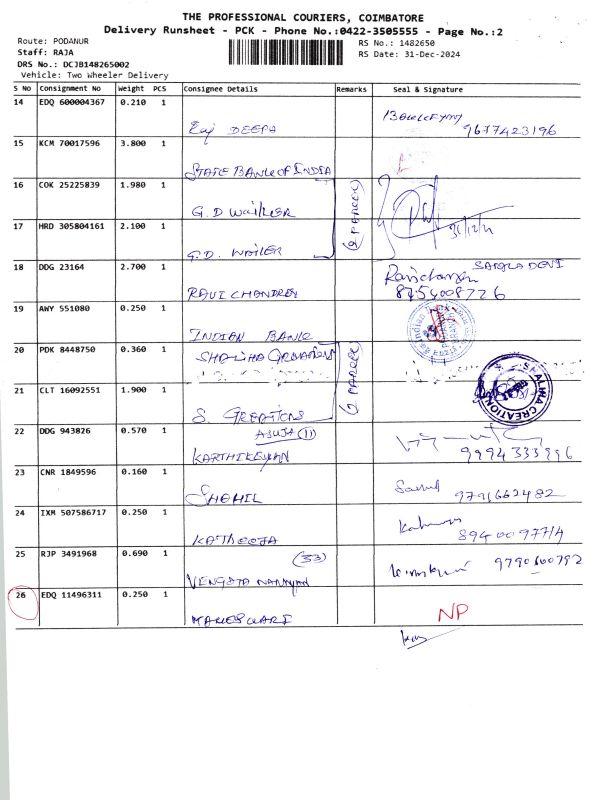 THE PROFESSIONAL COURIERS, COIMBATORE
Delivery Runsheet - PCK - Phone No.:0422-3505555 - Page No.:2
Route: PODANUR
RS No.: 1482650
Staff: RAJA
RS Date: 31-Dec-2024
DRS No.: DCJB148265002
Vehicle: Two Wheeler Delivery
S No Consignment No Weight PCS Consignee Details Remarks Seal & Signature
14 EDQ 600004367 0.210 1 DEEPA 9677423196
15 KCM 70017596 3.800 1 STATE BANK OF INDIA
16 COK 25225839 1.980 1 G.D WAILLER
17 HRD 305804161 2.100 1 G.D. WAILER 31/12/24
18 DDG 23164 2.700 1 RAVI CHANDREN Ravichanren SARALA DEVI 8754008726
19 AWY 551080 0.250 1 INDIAN BANK
20 PDK 8448750 0.360 1 SHALIHA
21 CLT 16092551 1.900 1 S. CREATIONS SHALIHA CREATION
22 DDG 943826 0.570 1 (11) KARTHIKEYAN
23 CNR 1849596 0.160 1 SHAHIL 9791662482
24 IXM 507586717 0.250 1 KATHEEJA 8940097714
25 RJP 3491968 0.690 1 (33) VENGATA NARAYAN 9790600792
26 EDQ 11496311 0.250 1 MAHESWARI NP